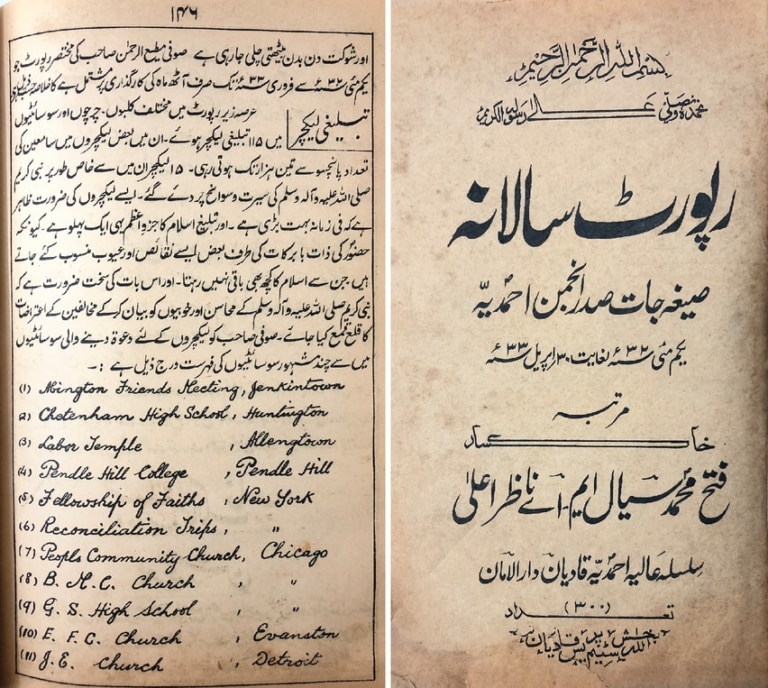 ۱۴۶
اور شوکت دن بدن بیٹھتی چلی جا رہی ہے صوفی مطیع الرحمن صاحب کی مختصر رپورٹ جو
یکم مئی ۳۲ء سے فروری ۳۳ء تک صرف آٹھ ماہ کی کارگذاری پر مشتمل ہے کا خلاصہ
تبلیغی لیکچر
عرصہ زیر رپورٹ میں مختلف کلبوں۔ چرچوں اور سوسائٹیوں
میں ۱۱۵ تبلیغی لیکچر ہوئے۔ ان میں بعض لیکچروں میں سامعین کی
تعداد پانچسو سے تین ہزار تک ہوتی رہی۔ ۱۵ لیکچر ان میں سے خاص طور پر نبی کریم
صلی اللہ علیہ وآلہ وسلم کی سیرت و سوانح پر دے گئے۔ ایسے لیکچروں کی ضرورت ظاہر
ہے کہ فی زمانہ بہت بڑی ہے۔ اور تبلیغ اسلام کا جزو اعظم یہی ایک پہلو ہے۔ کیونکہ
حضورؐ کی ذات بابرکات کی طرف بعض ایسے نقائص اور عیوب منسوب کئے جاتے
ہیں جن سے اسلام کا کچھ بھی باقی نہیں رہتا۔ اور اس بات کی سخت ضرورت ہے کہ
نبی کریم صلی اللہ علیہ وآلہ وسلم کے محاسن اور خوبیوں کو بیان کر کے مخالفین کے اعتراضات
کا قلع قمع کیا جائے۔ صوفی صاحب کو لیکچروں کے لئے دعوۃ دینے والی سوسائٹیوں
میں سے چند مشہور سوسائٹیوں کی فہرست درج ذیل ہے :۔
(1) Abington Friends Meeting, Jenkintown
(2) Chetenham High School, Huntington
(3) Labor Temple , Allengtown
(4) Pendle Hill College , Pendle Hill
(5) Fellowship of Faiths , New York
(6) Reconciliation Trips, "
(7) Peopls Community Church, Chicago
(8) B. M. C. Church , "
(9) G. S. High School , "
(10) E. F. C. Church , Evanston
(11) J. E. Church , Detroit
بسم اللہ الرحمن الرحیم
نحمدہ ونصلی علی رسولہ الکریم
رپورٹ سالانہ
صیغہ جات صدر انجمن احمدیہ
یکم مئی ۳۲ء لغایت ۳۰ اپریل ۳۳ء
مرتبہ
خاکسار
فتح محمد سیال ایم۔ اے ناظر اعلیٰ
سلسلہ عالیہ احمدیہ قادیان دار الامان
(۳۰۰)
تعداد
اللہ بخش سٹیم پریس قادیان